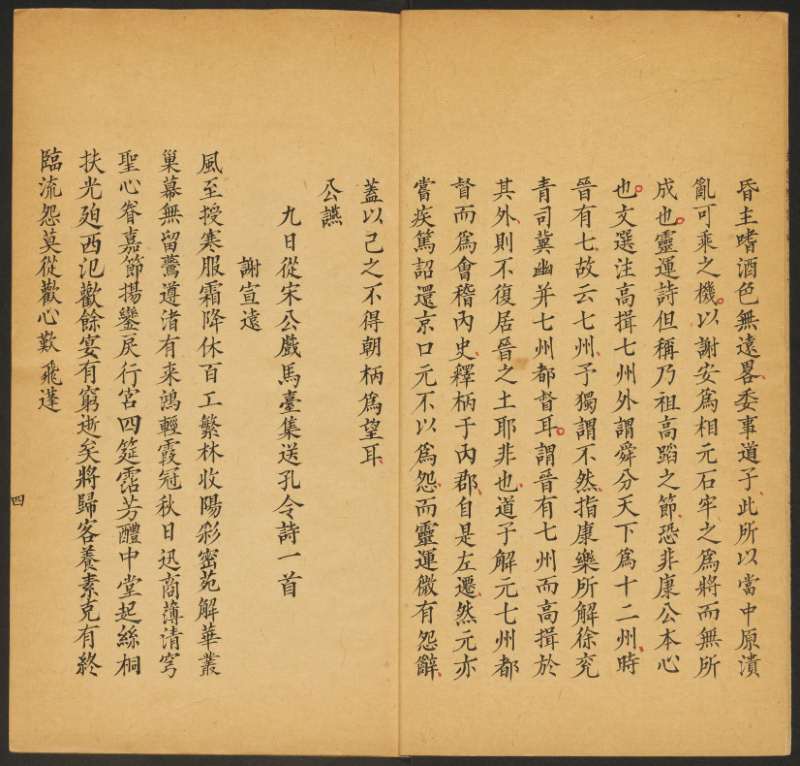 昏主嗜酒色無遠畧委事道子此所以當中原潰
亂可乘之機以謝安為相元石牢之為將而無所
成也靈運詩但稱乃祖高蹈之節恐非康公本心
也文選注高揖七州外謂舜分天下為十二州時
晉有七故云七州予獨謂不然指康樂所解徐兖
青司冀幽并七州都督耳謂晉有七州而高揖於
其外則不復居晉之土耶非也道子解元七州都
督而為會稽内史釋柄于内郡自是左遷然元亦
嘗疾篤詔還京口元不以為怨而靈運微有怨辭
蓋以己之不得朝柄為望耳
公讌
九日從宋公戲馬臺集送孔令詩一首
謝宣遠
風至授寒服霜降休百工繁林收陽彩密苑解華叢
巢幕無留鷰遵渚有来鴻輕霞冠秋日迅商薄清穹
聖心眷嘉節揚鑾戾行宮四筵霑芳醴中堂起絲桐
扶光廹西汜歡餘宴有窮逝矣將歸客養素克有終
臨流怨莫從歡心歎飛蓬
四